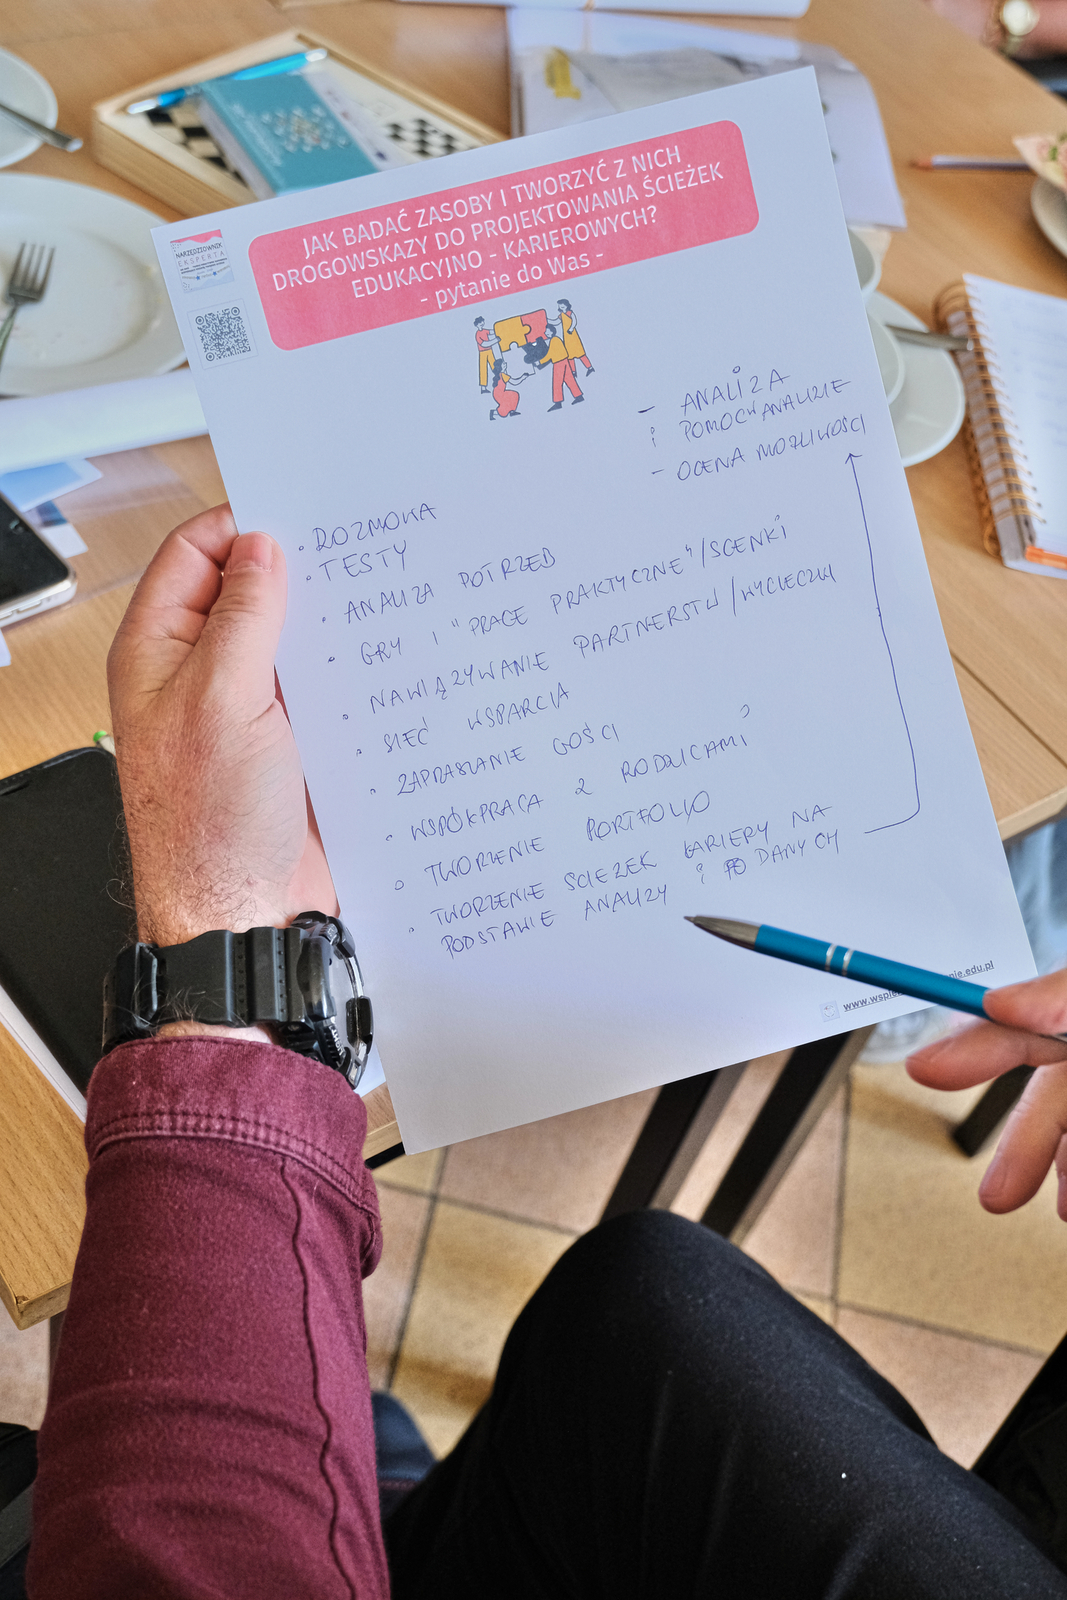 JAK BADAĆ ZASOBY I TWORZYĆ Z NICH
DROGOWSKAZY DO PROJEKTOWANIA ŚCIEŻEK
EDUKACYJNO - KARIEROWYCH?
- pytanie do Was -
NARZĘDZIOWNIK
EKSPERTA
- ANALIZA
i POMOC W ANALIZIE
- OCENA MOŻLIWOŚCI
• ROZMOWA
• TESTY
• ANALIZA POTRZEB
• GRY I "PRACE PRAKTYCZNE"/SCENKI
• NAWIĄZYWANIE PARTNERSTW/WYCIECZKI
• SIEĆ WSPARCIA
• ZAPRASZANIE GOŚCI
• WSPÓŁPRACA Z RODZICAMI
• TWORZENIE PORTFOLIO
• TWORZENIE SCIEŻEK KARIERY NA
PODSTAWIE ANALIZY i DANYCH